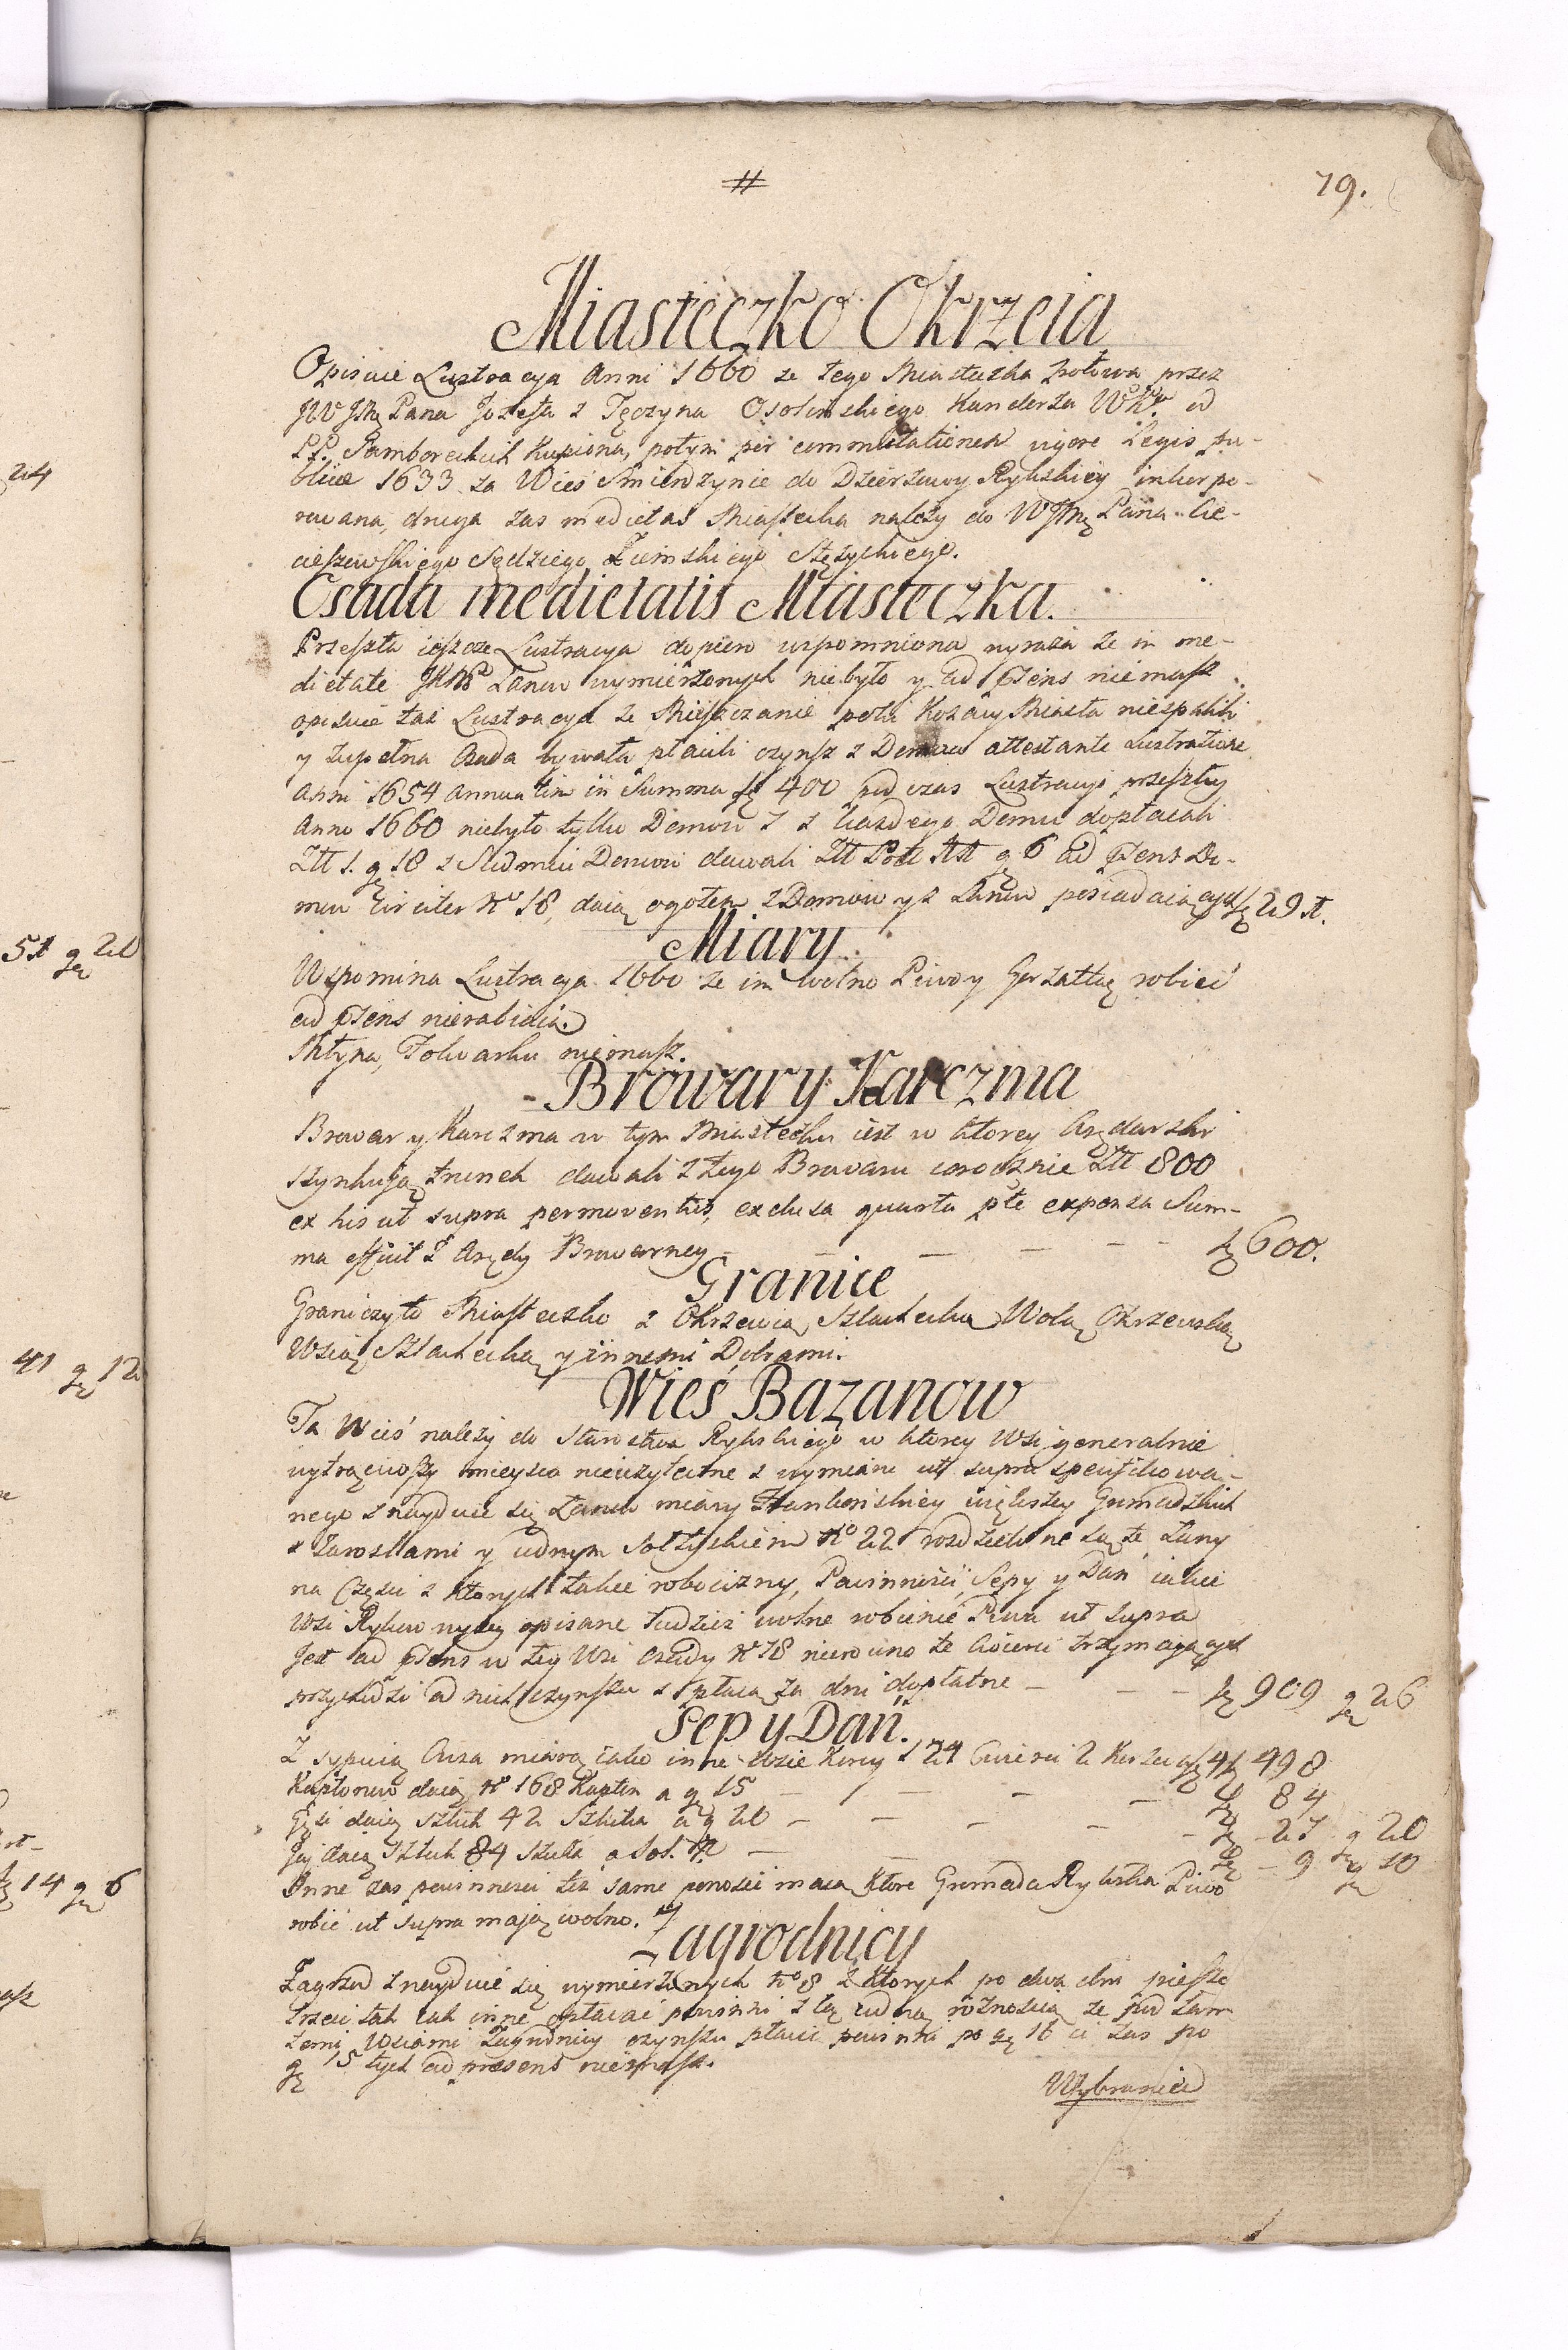 24
51 g 20
41 g 12
14 g 6
#
79.
Miasteczko Okrzeia
Opisuie Lustracya Anni 1660 ze tego Miasteczka Połowa przez
JW JMę Pana Jozefa z Tęczyna Osolinskiego Kanclerza WK. od
PP. Samboreckich kupiona, potym per commutationem vigore Legis pu-
blicae 1633 za Wieś Smierdzynie do Dzierzawy Rykskiey inkorpo-
rowana, druga zas medietas Miasteczka należy do WJMę Pana Cie-
cieszewskiego Sędziego Ziemskiego Stężyckiego.
Osada medietatis Miasteczka.
Przeszła ieszcze Lustracya dopiero wspomniona wyraża że in me-
dietate JKM Łanow wymierzonych niebyło y ad psens niemasz
opisuie taż Lustracya że Mieszczanie poki Kozacy Miasta niespalili
y zupełna Osada bywała płacili czynsz z Domow attestante Lustratione
Anni 1654 Annuatim in Summa 400 podczas Lustracyi przeszłey
Anno 1660 niebyło tylko Domow 7 z każdego Domu dopłacali
Złł 1. g 18 z Siedmiu Domow dawali Złł g 6 ad psens Do-
mow circiter No 18, daią ogołem z Domow y z Łanow posiadaiących 29
Miary
Wspomina Lustracya 1660 że im wolno Piwo y Gorzałkę robić
ad psens nierabiaią.
Młyna, Folwarku niemasz.
Browar y Karczma
Browar y Karczma w tym Miasteczku iest w ktorey Arędarski
szynkuią trunek dawali z tego Browaru corocznie Złł 800
ex his ut supra permoventibus, exclusa quarta pte expensa Sum-
ma efficit z Arędy Browarney 600.
Granice
Graniczy to Miasteczko z Okrzeią Szlachecką Wolą Okrzeyską
Wsią Szlachecką y innemi Dobrami.
Wieś Bazanow
Ta Wieś należy do Starostwa Rykskiego w ktorey Wsi generalnie
wytrąciwszy mieysca nieużyteczne z wymiaru ut supra specifikowa-
nego znayduie się Łanow miary większey Gromadzkich
z Zaroslami y iednym Sołtyskiem No 22 rozdzielone są te Łany
na Części z ktorych takie robocizny, Powinności, Sepy y Dań iakie
Wsi Rykow wyżey opisane tudzież wolne robienie Piwa ut supra
Jest ad psens w tey Wsi Osady No 78 nierowno te cwierci trzymaiących
przychodzi od nich czynszu z płacą za dni dopłatne 909 g 26
Sep y Dań.
Z sypuią Owsa miarą iako inne Wsie Korcy 124 Cwierci 2 Korzec a 498
Kapłonow daią No 168 Kapłon a g 15 84
Gęsi daią sztuk 42 Sztuka a g 20 27 g 20
Jay daią Sztuk 84 sztuka a Sol. 9 g 10
Inne zas powinnosci też same ponosić maią ktore Gromada Rykska Piwo
robić ut supra maią wolno.
Zagrodnicy
Zagrod znayduie się wymierzonych No 8 z ktorych po dwa dni piesze
trzeci tak iak inne opłacać powinni z tą iedną rożnością że pod tam
temi Wsiami Zagrodnicy czynszu płacić powinni po g 16 ci zas po
g 15 tych ad praesens niemasz.
Wybraniec